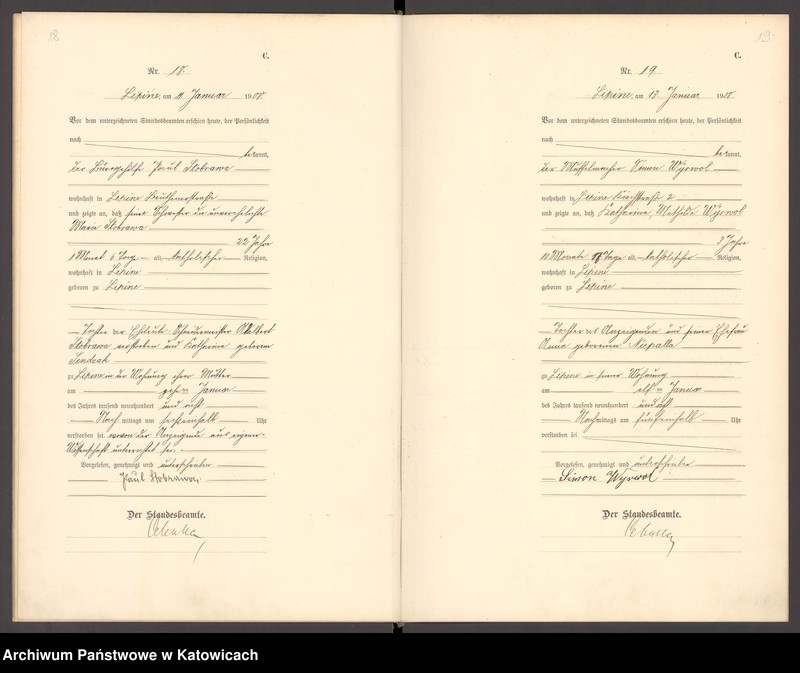 18
C.
Nr. 18.
Lipine, am 11 Januar 1908.
Vor dem unterzeichneten Standesbeamten erschien heute, der Persönlichkeit
nach
bekannt,
der Bürogehilfe Paul Stobrawa
wohnhaft in Lipine Beuthenerstraße
und zeigte an, daß seine Schwester die unverehelichte
Maria Stobrawa
22 Jahre
1 Monat 6 Tage alt, katholischer Religion,
wohnhaft in Lipine
geboren zu Lipine
Tochter der Eheleute Schneidermeister
Stobrawa verstorben und Katharina geborene
Sendzak
zu Lipine in der Wohnung ihrer Mutter
am zehn ten Januar
des Jahres tausend neunhundert und acht
Nachmittags um sechseinhalb Uhr
verstorben sei, wovon der Anzeigende aus eigener
Wissenschaft unterrichtet sei.
Vorgelesen, genehmigt und unterschrieben
Paul Stobrawa.
Der Standesbeamte.
Cebulla
19.
C.
Nr. 19
Lipine, am 13 Januar 1908.
Vor dem unterzeichneten Standesbeamten erschien heute, der Persönlichkeit
nach
bekannt,
der Muffelmacher Simon Wyrwol
wohnhaft in Lipine Kirchstraße 2
und zeigte an, daß Katharina, Mathilde Wyrwol
3 Jahre
10 Monate 17 Tage alt, katholischer Religion,
wohnhaft in Lipine
geboren zu Lipine
Tochter des Anzeigenden und seiner Ehefrau
Anna geborenen Niepalla
zu Lipine in seiner Wohnung
am elf ten Januar
des Jahres tausend neunhundert und acht
Nachmittags um fünfeinhalb Uhr
verstorben sei
Vorgelesen, genehmigt und unterschrieben
Simon Wyrwol
Der Standesbeamte.
Cebulla
Archiwum Państwowe w Katowicach